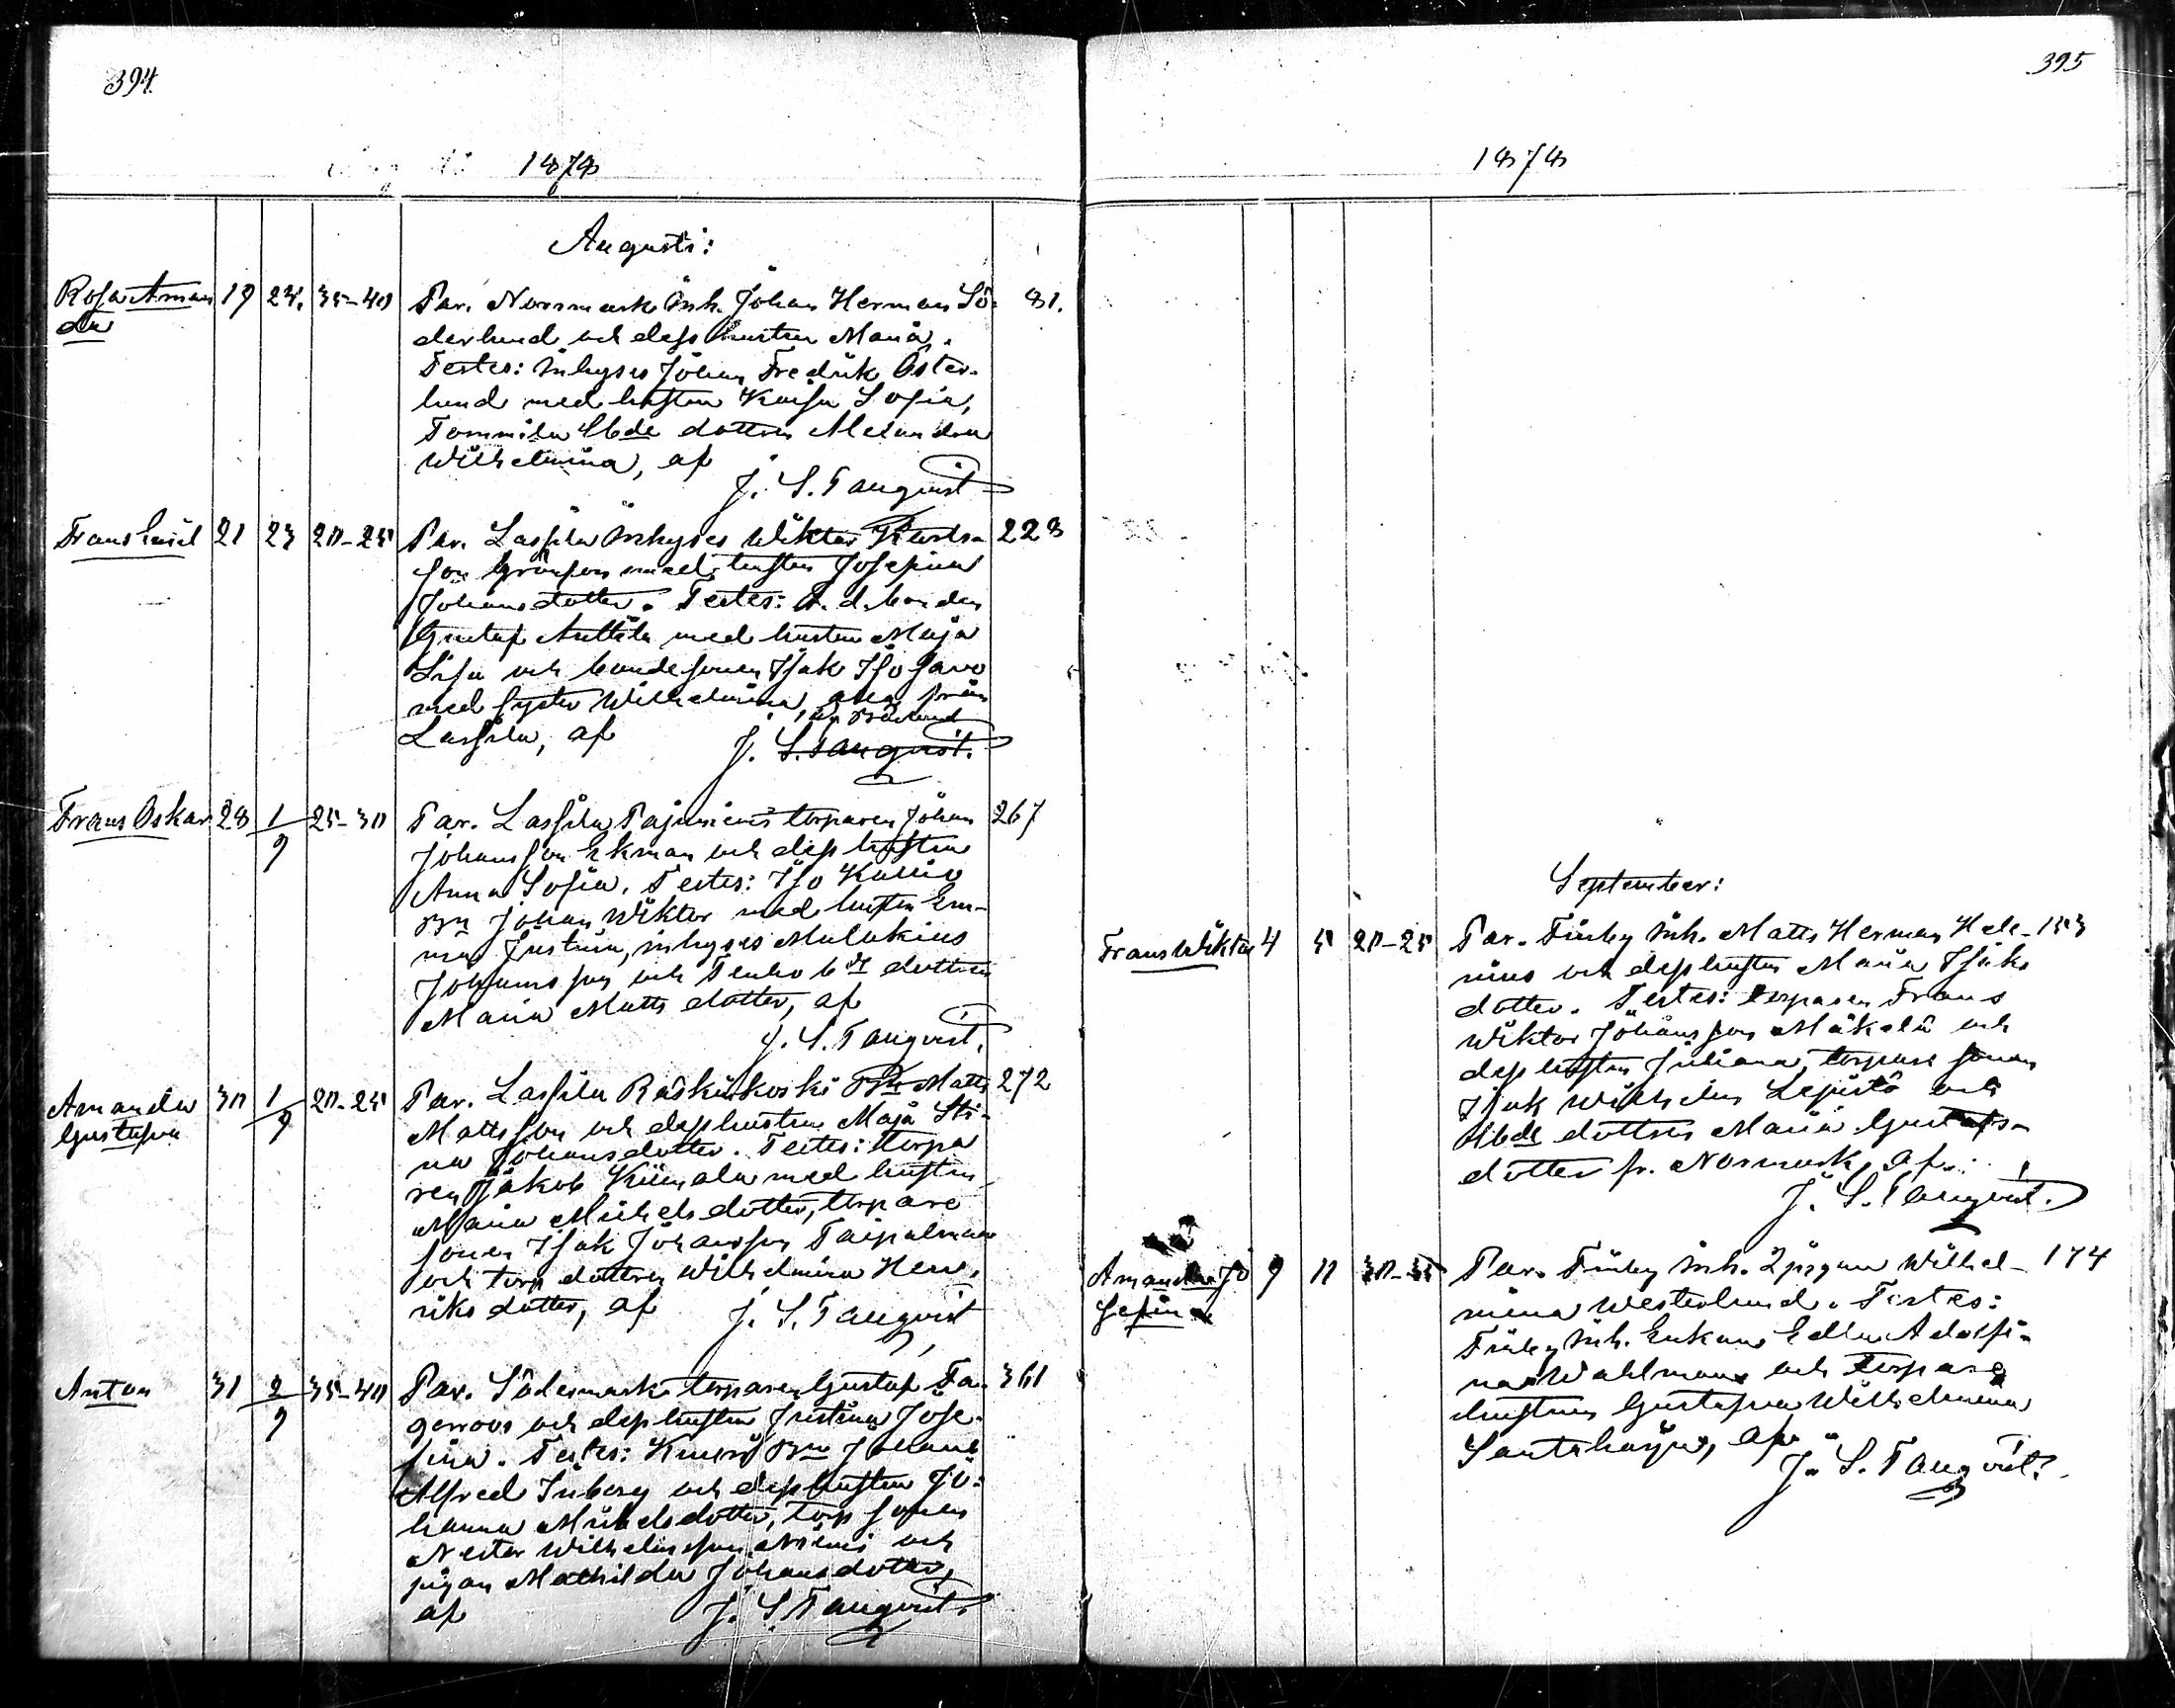 394.
1878
Augusti:
Rosa Aman 19 24. 35-40 Par. Norrmark Inh. Johan Herman Sö- 81.
da
derlund och dess hustru Maria.
Testes: inhyses Johan Fredrik Öster-
lund med hustru Kaisa Sofia,
Tommila Bde dottren Alexandra
Wilhelmina, af
J. S. Tanqvist
Frans Emil 21 23 20-25 Par. Lassila Inhyses Wiktor
son Grönfors med hustru Josefina 228
Johansdotter. Testes: F. d. bonden
Gustaf Anttila med hustru Maja
Lisa och bondesonen Isak Iso Savo
med syster Wilhelmina, alla från
Lassila, af
J. S. Tanqvist.
Frans Oskar 28 1/9 25-30 Par. Lassila Pajuniemi torparen Johan 267
Johansson Ekman och dess hustru
Anna Sofia. Testes: Iso Kallio
Bn Johan Wiktor med hustru Em-
ma Justina, inhyses Malakias
Johansson och Tenho bde dottren
Maria Matts dotter, af
J. S. Tanqvist.
Amanda 30 1/9 20-25 Par. Lassila Bn Matts 272
Gustafva
Mattsson och dess hustru Maja Sti-
na Johansdotter. Testes: torpa
ren Jakob med hustru
Maria Michelsdotter, torpare
sonen Isak Johansson Taipalmaa
och torp dottren Wilhelmina Hen-
riks dotter, af J. S. Tanqvist
Anton 31 2/9 35-40 Par. Södermark torparen Gustaf Fa- 361
gerroos och dess hustru Justina Jose-
fina. Testes: Bn Johan
Alfred Inberg och dess hustru Jo-
hanna Michelsdotter, torp sonen
Nestor Wilhelmsson Niemi och
pigan Mathilda Johansdotter,
af J. S. Tanqvist.
395
1878
September:
Frans Wiktor 4 5 20-25 Par. Finby Inh. Matts Herman Hele- 153
nius och dess hustru Maria Isaks
dotter. Testes: torparen Frans
Wiktor Johansson Mäkelä och
dess hustru Juliana, torpare sonen
Isak Wilhelm Lepistö och
Bde dottren Maria Gustafs-
dotter fr. Normark, af
J. S. Tanqvist.
Amanda Jo 9 11 30-35 Par. Finby Inh. pigan Wilhel- 174
sefina
mina Westerlund. Testes:
Finby Inh. Enkan Edla Adolfi-
na Wahlman och torpare
hustrun Gustafva Wilhelmina
Santaharju, af
J. S. Tanqvist.